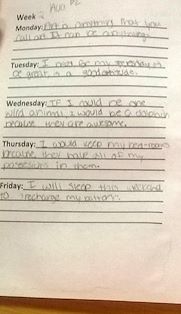 Week
Monday: Art is anything that you
call art. It can be anything.
Tuesday: I must be my
be great is a
Wednesday: If I could be one
wild animal I would be a dolphin
because they are awesome.
Thursday: I would keep my bed-room
because they have all of my
possessions in them.
Friday: I will sleep this weekend
to recharge my battery.